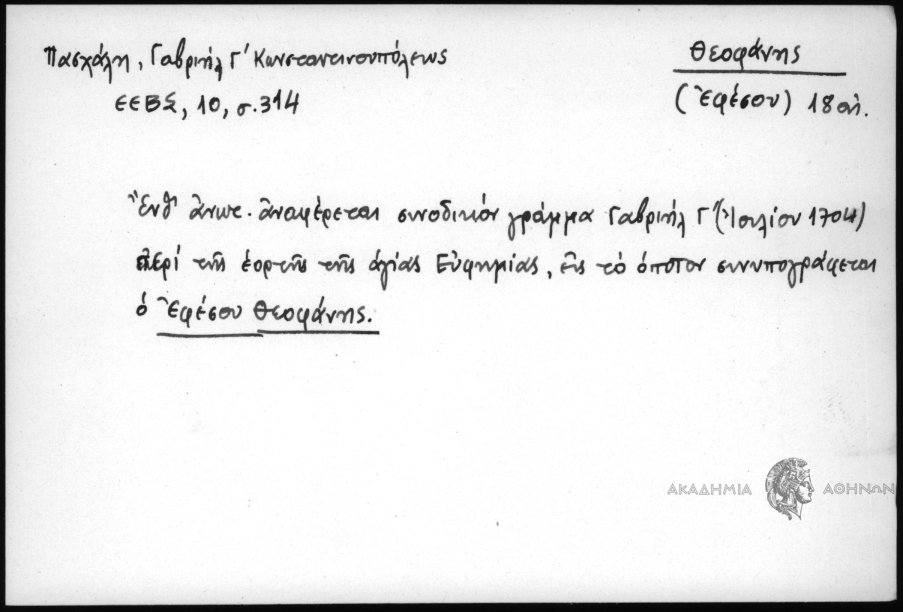 Πασχάλη, Γαβριήλ Γ' Κωνσταντινουπόλεως
ΕΕΒΣ, 10, σ. 314
Θεοφάνης
(Ἐφέσου) 18 αἰ.
Ἔνθ' ἄνωτ. ἀναφέρεται συνοδικόν γράμμα Γαβριήλ Γ' (Ἰουλίου 1704)
περί τῆς ἑορτῆς τῆς ἁγίας Εὐφημίας, εἰς τὸ ὁποῖον συνυπογράφεται
ὁ Ἐφέσου Θεοφάνης.
ΑΚΑΔΗΜΙΑ ΑΘΗΝΩΝ